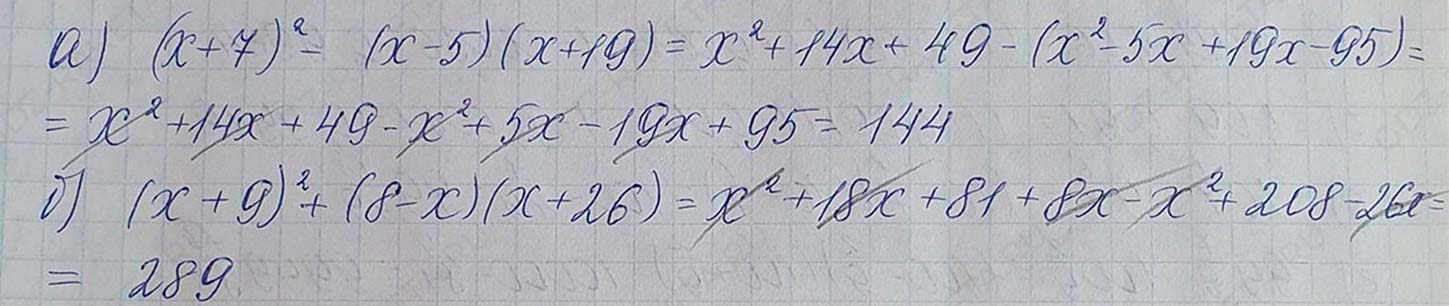 а) (x+7)² - (x-5)(x+19) = x² + 14x + 49 - (x² - 5x + 19x - 95) =
= x² + 14x + 49 - x² + 5x - 19x + 95 = 144
б) (x + 9)² + (8 - x)(x + 26) = x² + 18x + 81 + 8x - x² + 208 - 26x =
= 289